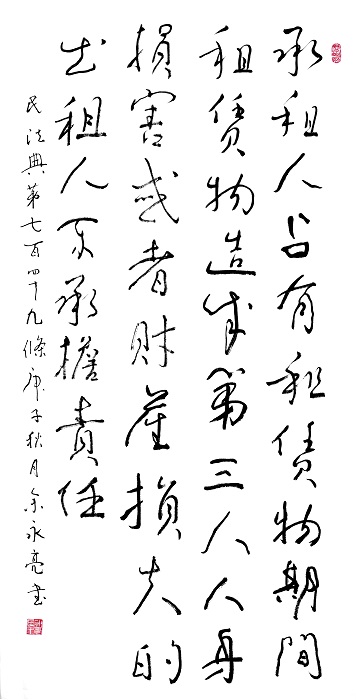 承租人占有租赁物期間
租赁物造成第三人人身
損害或者财産損失的
出租人不承擔責任
民法典第七百四十九條庚子秋月余永亮书